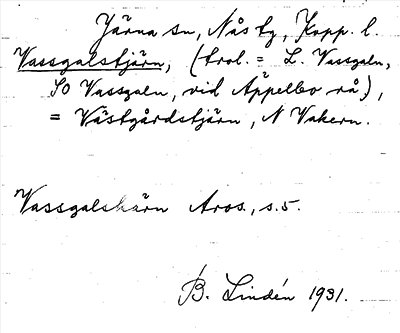 Järna sn, Nås tg, Kopp. l.
Vassgalstjärn, (trol. = L. Vassgaln,
SO Vassgaln, vid Äppelbo rå),
= Västgårdstjärn, N Vakern.
Vassgalskärn Aros, s. 5.
B. Lindén 1931.